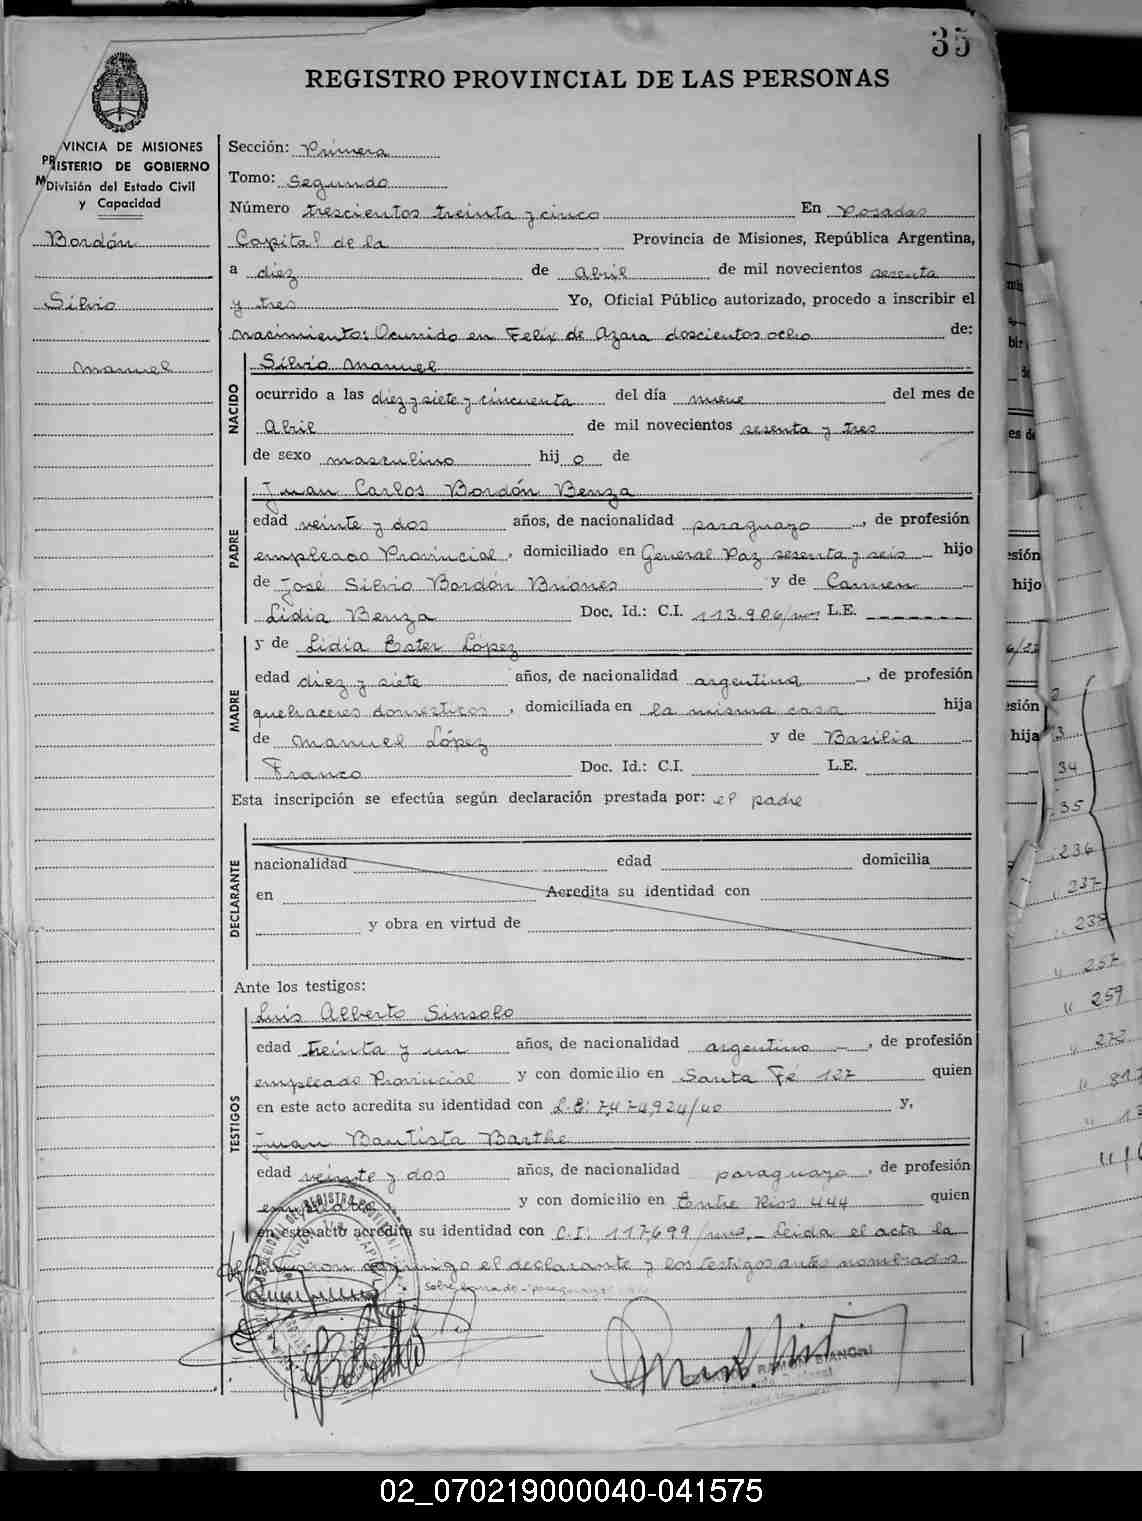 35
REGISTRO PROVINCIAL DE LAS PERSONAS
VINCIA DE MISIONES
PR ISTERIO DE GOBIERNO
M División del Estado Civil
y Capacidad
Bordón
Silvio
Manuel
Sección: Primera
Tomo: Segundo
Número trescientos treinta y cinco En Posadas
Capital de la Provincia de Misiones, República Argentina,
a diez de Abril de mil novecientos sesenta
y tres Yo, Oficial Público autorizado, procedo a inscribir el
nacimiento: Ocurrido en Felix de Azara doscientos ocho de:
NACIDO
Silvio Manuel
ocurrido a las diez y siete y cincuenta del día nueve del mes de
Abril de mil novecientos sesenta y tres
de sexo masculino hij o de
PADRE
Juan Carlos Bordón Benza
edad veinte y dos años, de nacionalidad paraguayo, de profesión
empleado Provincial, domiciliado en General Paz sesenta y seis hijo
de José Silvio Bordón Briones y de Carmen
Lidia Benza Doc. Id.: C.I. 113.906/ L.E. -------
MADRE
y de Lidia Ester López
edad diez y siete años, de nacionalidad argentina, de profesión
quehaceres domesticos, domiciliada en la misma casa hija
de Manuel López y de Basilia
Franco Doc. Id.: C.I. L.E.
Esta inscripción se efectúa según declaración prestada por: el padre
DECLARANTE
nacionalidad edad domicilia
en Acredita su identidad con
y obra en virtud de
Ante los testigos:
TESTIGOS
Luis Alberto Sinsolo
edad treinta y un años, de nacionalidad argentino -, de profesión
empleado Provincial y con domicilio en Santa Fé 127 quien
en este acto acredita su identidad con L.E: 7,474,924/ y,
Juan Bautista Barthe
edad veinte y dos años, de nacionalidad paraguayo, de profesión
empleado y con domicilio en Entre Rios 444 quien
en este acto acredita su identidad con C.I: 117,699/ .- Leida el acta la
conmigo el declarante y los testigos antes nombrados
Sobre borrado - "paraguayo"
RAMON BIANCHI
sión
hijo
sión
hija
34
35
236
237
238
257
259
272
02_070219000040-041575